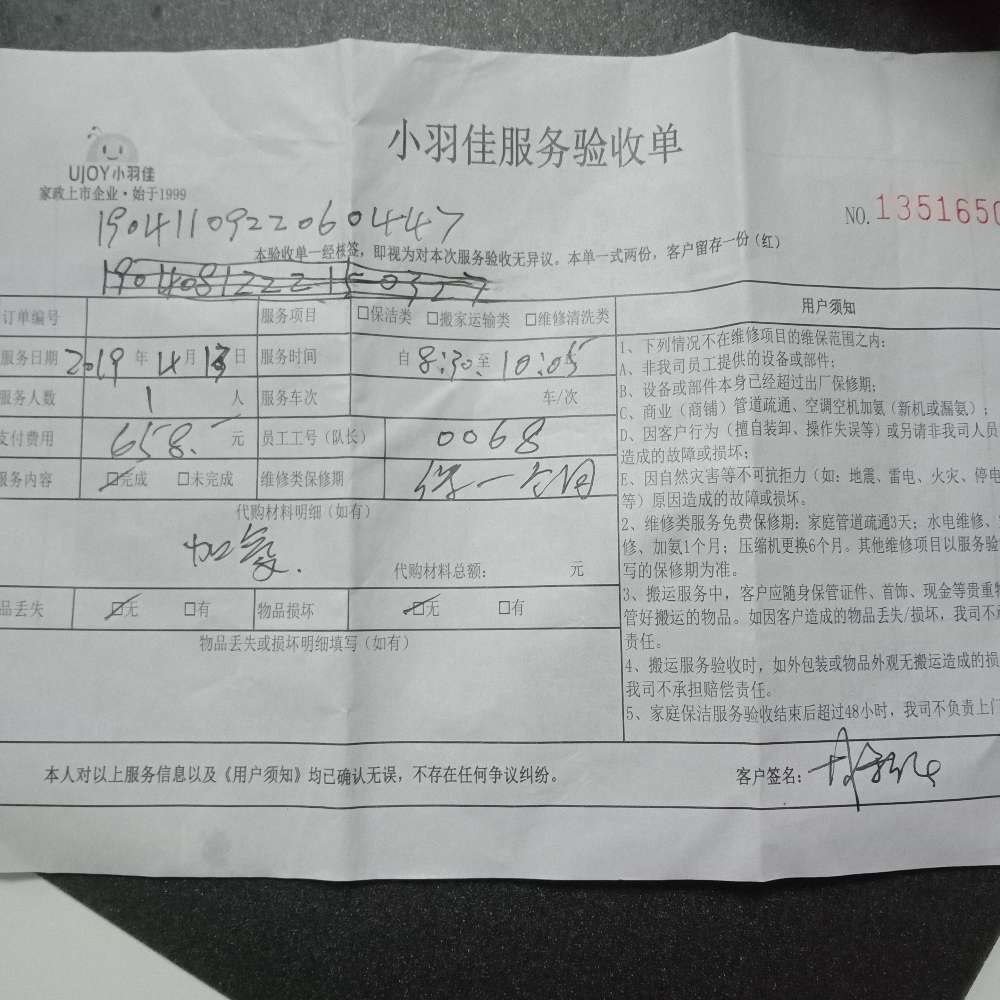 小羽佳服务验收单
UJOY小羽佳
家政上市企业·始于1999
NO.1351650
190411092206 0447
本验收单一经核签，即视为对本次服务验收无异议。本单一式两份，客户留存一份（红）
订单编号 服务项目 □保洁类 □搬家运输类 □维修清洗类
服务日期 2019 年 4 月 13 日 服务时间 自 8:30 至 10:05
服务人数 1 人 服务车次 车/次
支付费用 658. 元 员工工号（队长） 0068
服务内容 □完成 □未完成 维修类保修期 保一个月
代购材料明细（如有）
加氨.
代购材料总额： 元
品丢失 □无 □有 物品损坏 □无 □有
物品丢失或损坏明细填写（如有）
用户须知
1、下列情况不在维修项目的维保范围之内：
A、非我司员工提供的设备或部件；
B、设备或部件本身已经超过出厂保修期；
C、商业（商铺）管道疏通、空调空机加氨（新机或漏氨）；
D、因客户行为（擅自装卸、操作失误等）或另请非我司人员
造成的故障或损坏；
E、因自然灾害等不可抗拒力（如：地震、雷电、火灾、停电
等）原因造成的故障或损坏。
2、维修类服务免费保修期：家庭管道疏通3天；水电维修、
修、加氨1个月；压缩机更换6个月。其他维修项目以服务验
写的保修期为准。
3、搬运服务中，客户应随身保管证件、首饰、现金等贵重物
管好搬运的物品。如因客户造成的物品丢失/损坏，我司不承
责任。
4、搬运服务验收时，如外包装或物品外观无搬运造成的损
我司不承担赔偿责任。
5、家庭保洁服务验收结束后超过48小时，我司不负责上门
本人对以上服务信息以及《用户须知》均已确认无误，不存在任何争议纠纷。
客户签名：